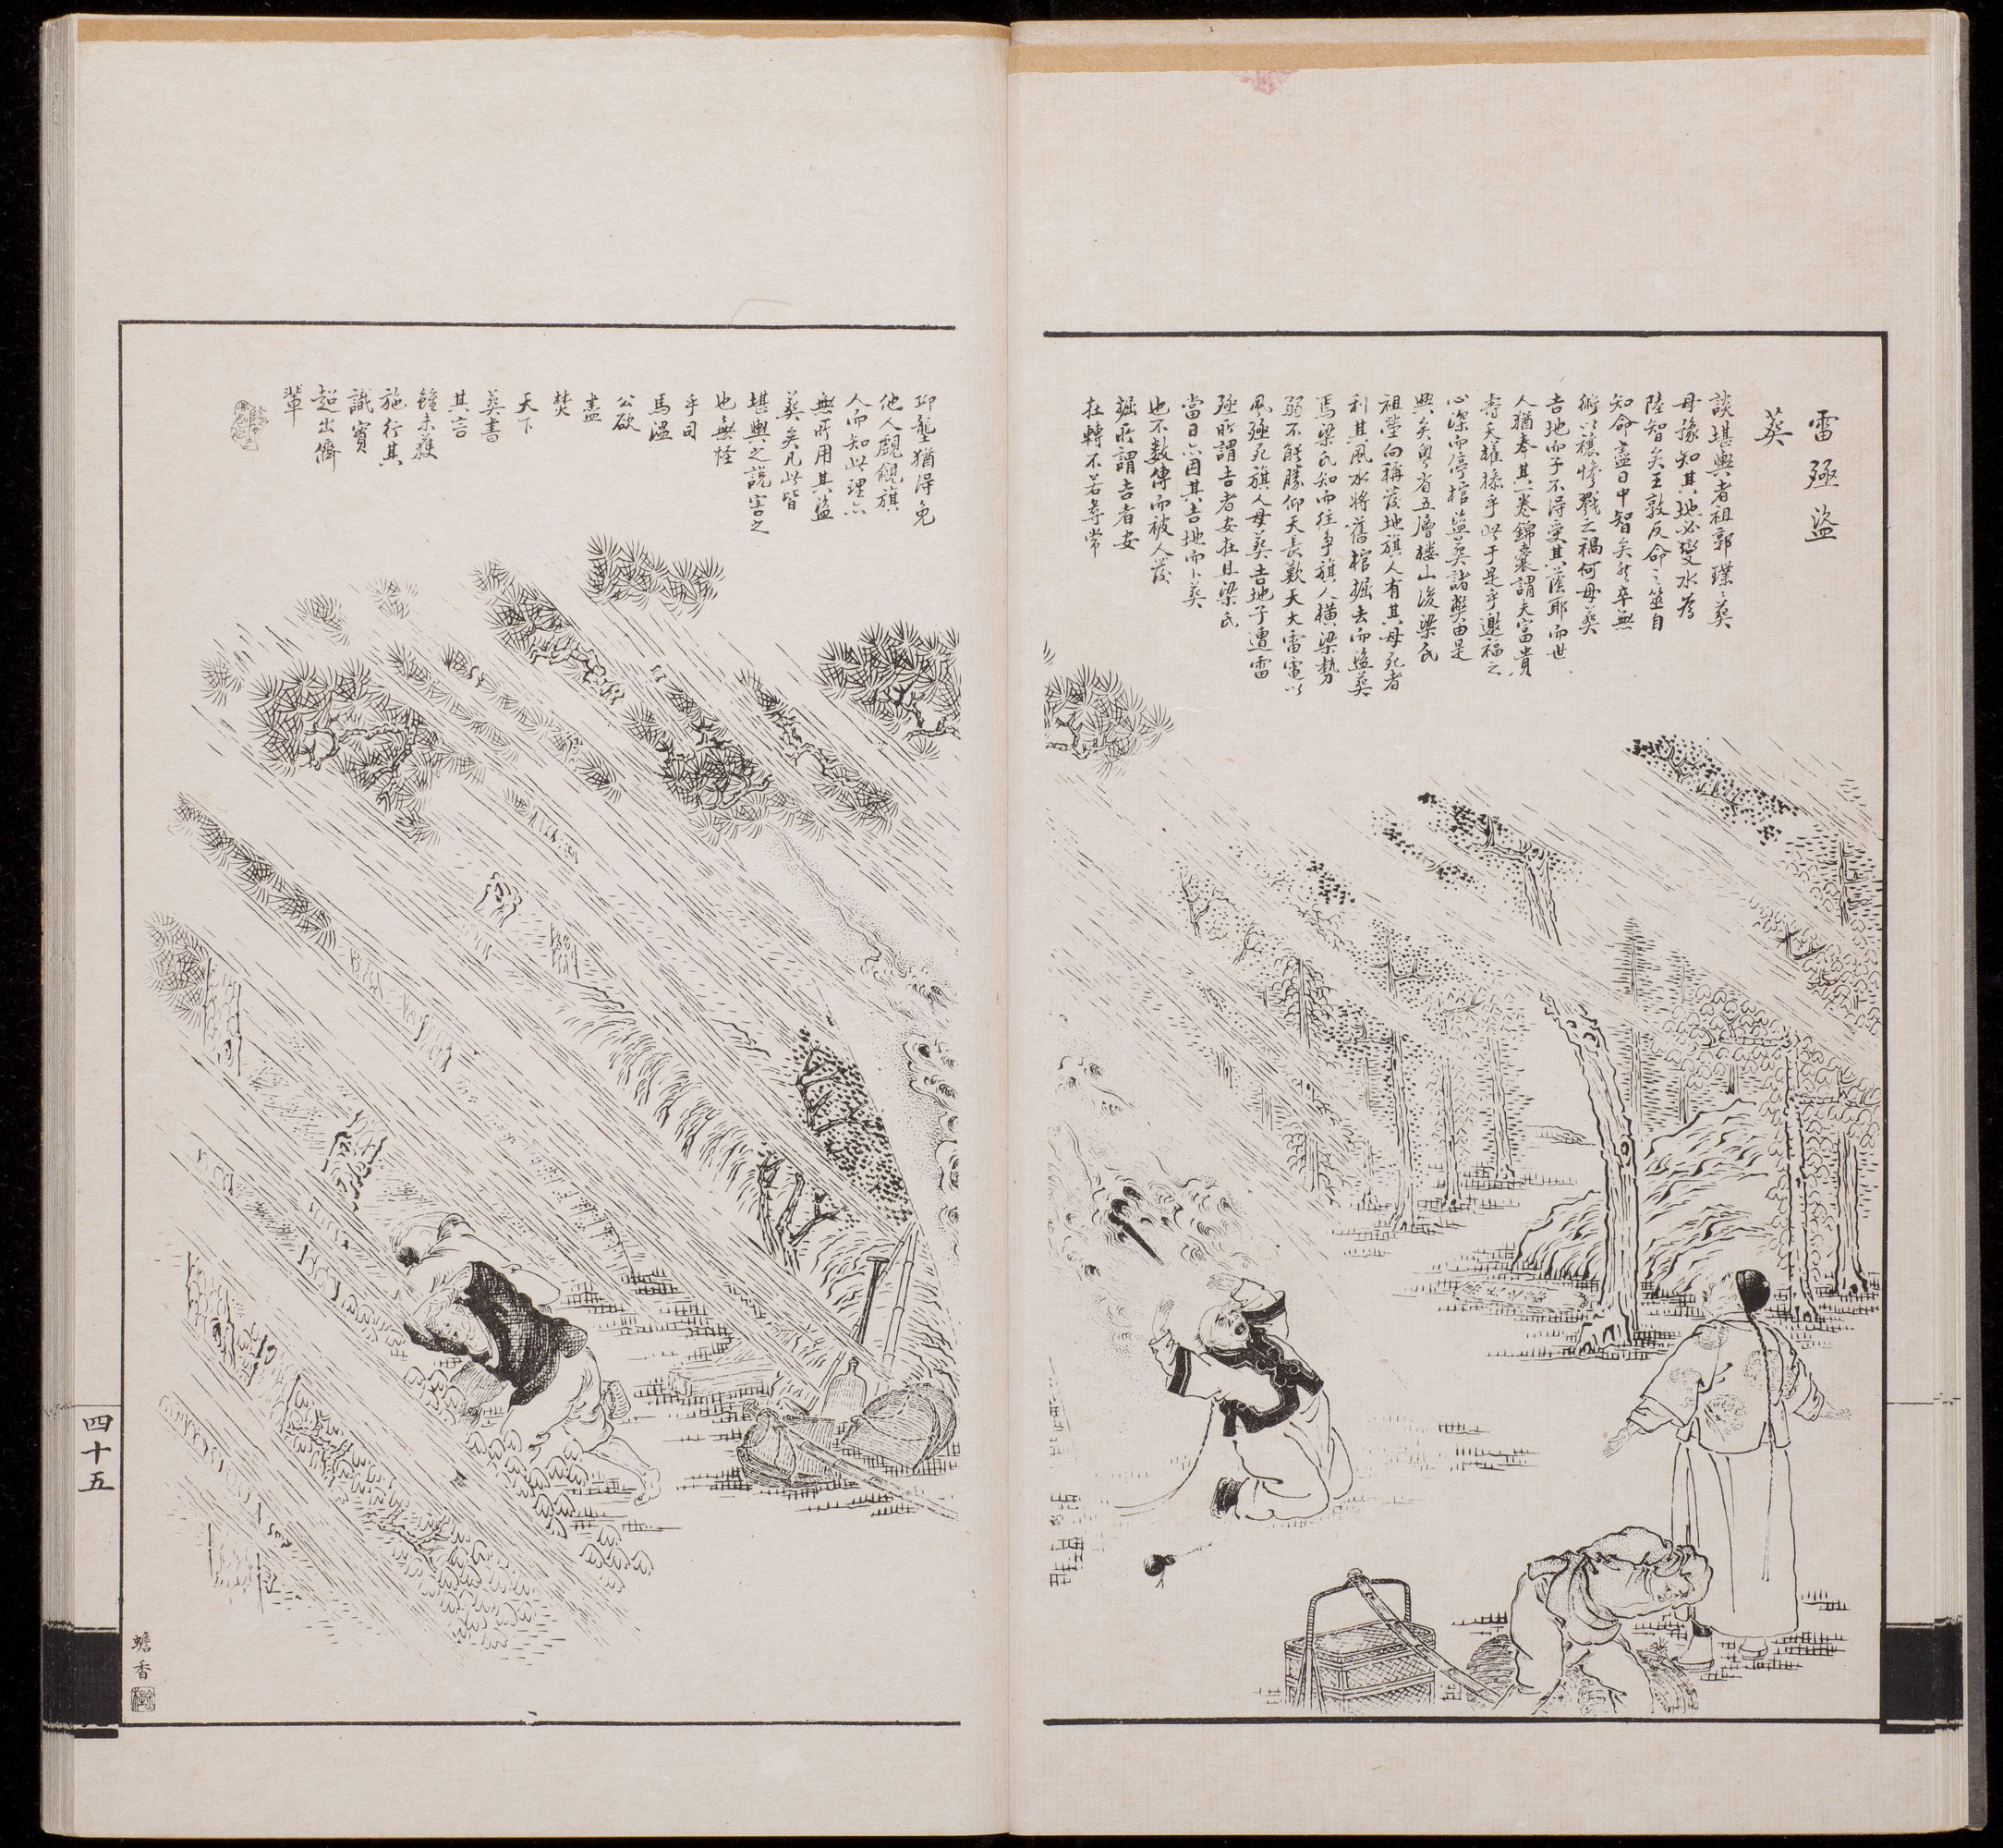 雷殛盜
葬
談堪輿者祖郭璞璞葬
母豫知其地必變水為
陸智矣王敦反命之筮自
知命盡日中智矣然卒無
術以禳慘戮之禍何母葬
吉地而子不得受其蔭耶而世
人猶奉其一卷錦囊謂夫富貴
壽夭權操乎此于是乎邀福之
心深而停棺盜葬諸獘由是
興矣粵省五層樓山後梁氏
祖塋向稱茂地旗人有其母死者
利其風水將舊棺掘去而盜葬
焉梁氏知而往爭旗人橫梁勢
弱不能勝仰天長歎天大雷電以
風殛死旗人母葬吉地子遭雷
殛所謂吉者安在且梁氏
當日亦因其吉地而卜葬
也不数傳而被人發
掘所謂吉者安
在轉不若尋常
邱壟猶得免
他人覬覦旗
人而知此理亦
無所用其盜
葬矣凡此皆
堪輿之說害之
也無怪
乎司
馬溫
公欲
盡
焚
天下
葬書
其言
雖未獲
施行其
識實
超出儕
輩
四十五
蟾香